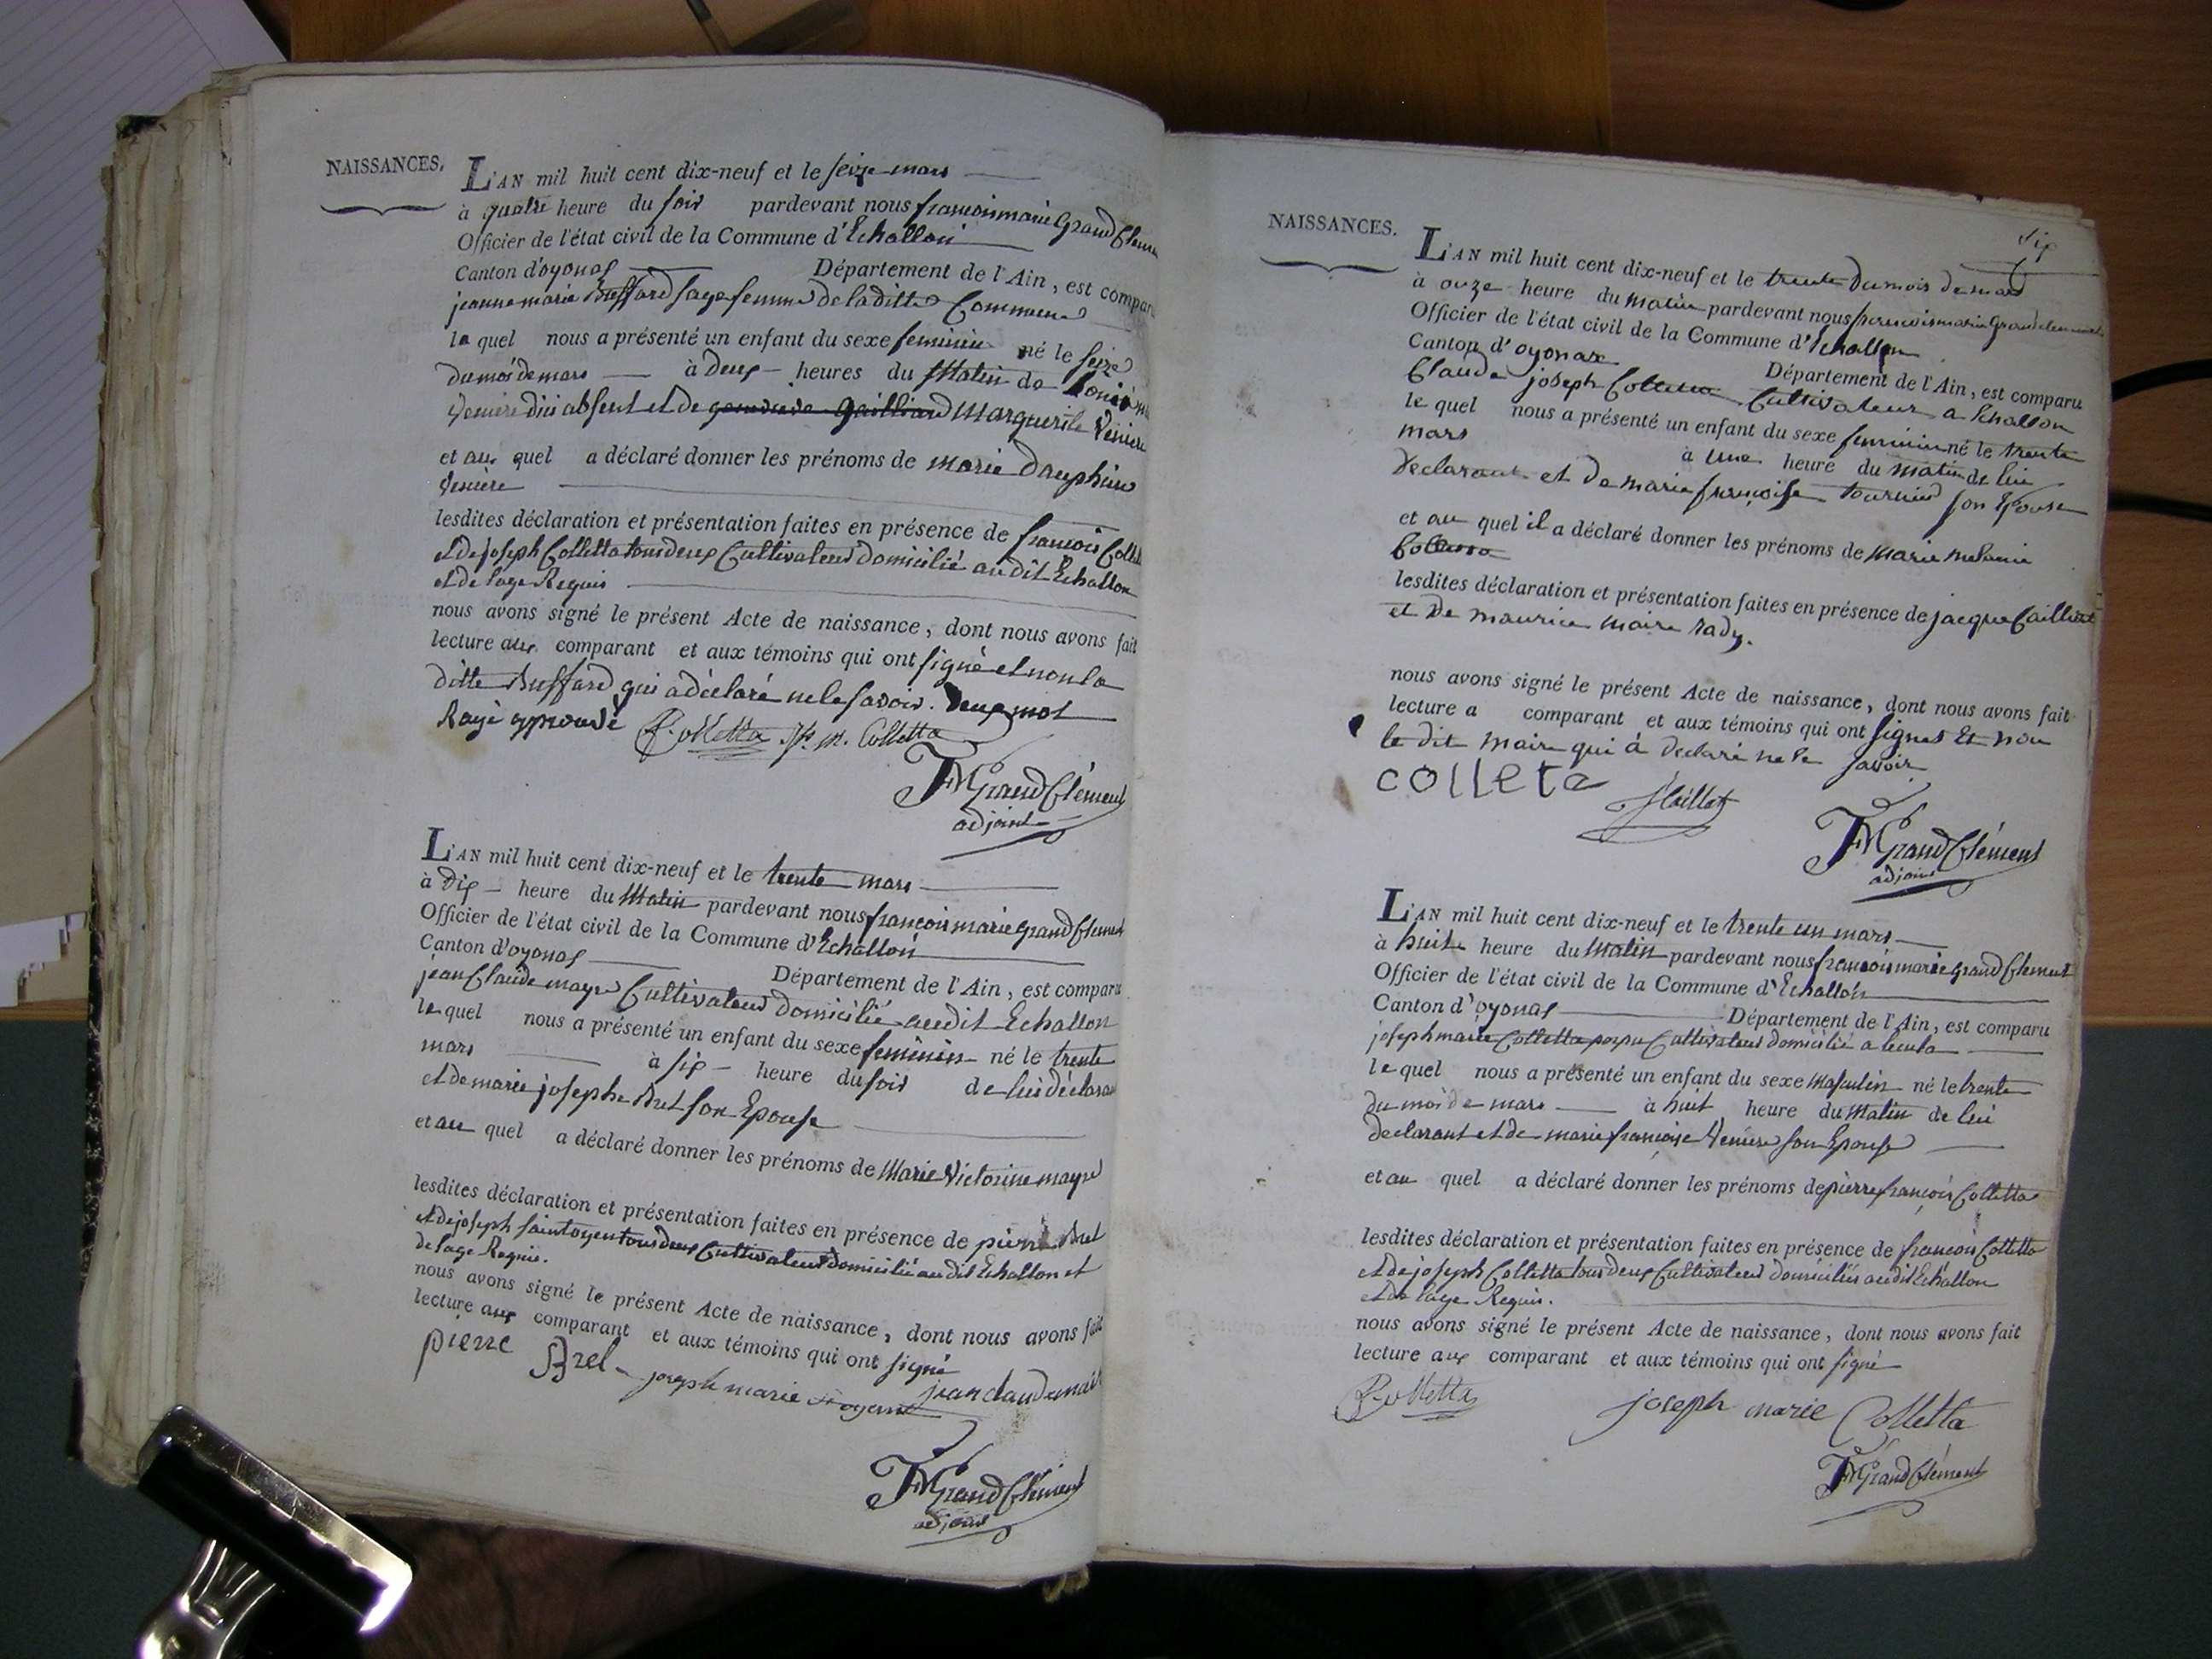 NAISSANCES.
L'AN mil huit cent dix-neuf et le seize mars
à quatre heure du soir pardevant nous francoismarie GrandClem
Officier de l'état civil de la Commune d'Echallon
Canton d'oyonas Département de l'Ain, est comparu
jeannemarie Buffard sage femme de laditte Commune
la quel nous a présenté un enfant du sexe feminin né le seize
du mois de mars à deux heures du Matin de
absent et de genevieve Gailliard Marguerite Veniere
et au quel a déclaré donner les prénoms de marie Dauphine
Veniere
lesdites déclaration et présentation faites en présence de francois Collet
et de joseph Colletta tous deux Cultivateurs domicilié au dit Echallon
et de l'age Requis
nous avons signé le présent Acte de naissance, dont nous avons fait
lecture aux comparant et aux témoins qui ont signé et non la
ditte Buffard qui a déclaré ne le savoir. Deux mot
Rayé approuvé Colletta M. Colletta
FMGrandClément
adjoint
L'AN mil huit cent dix-neuf et le trente mars
à dix heure du Matin pardevant nous francoismarie GrandClement
Officier de l'état civil de la Commune d'Echallon
Canton d'oyonas Département de l'Ain, est comparu
jean Claude mayre Cultivateur domicilié audit Echallon
le quel nous a présenté un enfant du sexe feminin né le trente
mars à six heure du soir de lui déclarant
et de marie josephe Bret son Epouse
et au quel a déclaré donner les prénoms de Marie Victorine mayre
lesdites déclaration et présentation faites en présence de pierre Bret
et de joseph saintoyen tous deux Cultivateurs domicilié au dit Echallon et
de l'age Requis.
nous avons signé le présent Acte de naissance, dont nous avons fait
lecture aux comparant et aux témoins qui ont signé
pierre Brel joseph marie jean claude maire
FMGrandClément
adjoint
six
NAISSANCES.
L'AN mil huit cent dix-neuf et le trente du mois de mars
à onze heure du matin pardevant nous francoismarie Grandclement
Officier de l'état civil de la Commune d'Echallon
Canton d'oyonax Département de l'Ain, est comparu
Claude joseph Colletta Cultivateur a Echallon
le quel nous a présenté un enfant du sexe feminin né le trente
mars à une heure du matin de lui
Declarant et de marie françoise tournier son Epouse
et au quel il a déclaré donner les prénoms de Marie melanie
Colletta
lesdites déclaration et présentation faites en présence de jacque Cailliat
et de maurice maire rady.
nous avons signé le présent Acte de naissance, dont nous avons fait
lecture a comparant et aux témoins qui ont signés Et non
le dit Maire qui à declaré ne le savoir
colleta
FMGrandClément
adjoint
L'AN mil huit cent dix-neuf et le trente un mars
à huit heure du Matin pardevant nous francoismarie GrandClement
Officier de l'état civil de la Commune d'Echallon
Canton d'oyonas Département de l'Ain, est comparu
joseph marie Colletta Cultivateur domicilié a
le quel nous a présenté un enfant du sexe Masculin né le trente
du mois de mars à huit heure du Matin de lui
declarant et de marie françoise Veniere son Epouse
et au quel a déclaré donner les prénoms de pierre françois Colletta
lesdites déclaration et présentation faites en présence de francois Colletta
et de joseph Colletta tous deux Cultivateurs domiciliés audit Echallon
et de l'age Requis.
nous avons signé le présent Acte de naissance, dont nous avons fait
lecture aux comparant et aux témoins qui ont signé
Colletta joseph marie Colletta
FMGrandClément